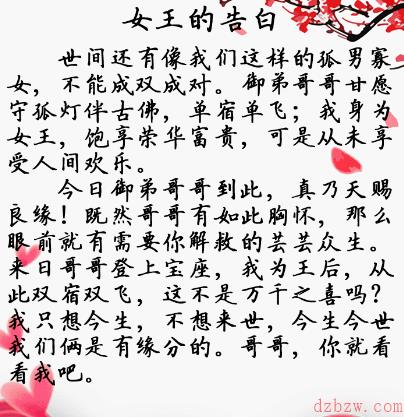 女王的告白
世间还有像我们这样的孤男寡
女，不能成双成对。御弟哥哥甘愿
守孤灯伴古佛，单宿单飞；我身为
女王，饱享荣华富贵，可是从未享
受人间欢乐。
今日御弟哥哥到此，真乃天赐
良缘！既然哥哥有如此胸怀，那么
眼前就有需要你解救的芸芸众生。
来日哥哥登上宝座，我为王后，从
此双宿双飞，这不是万千之喜吗？
我只想今生，不想来世，今生今世
我们俩是有缘分的。哥哥，你就看
看我吧。
dzbzw.com